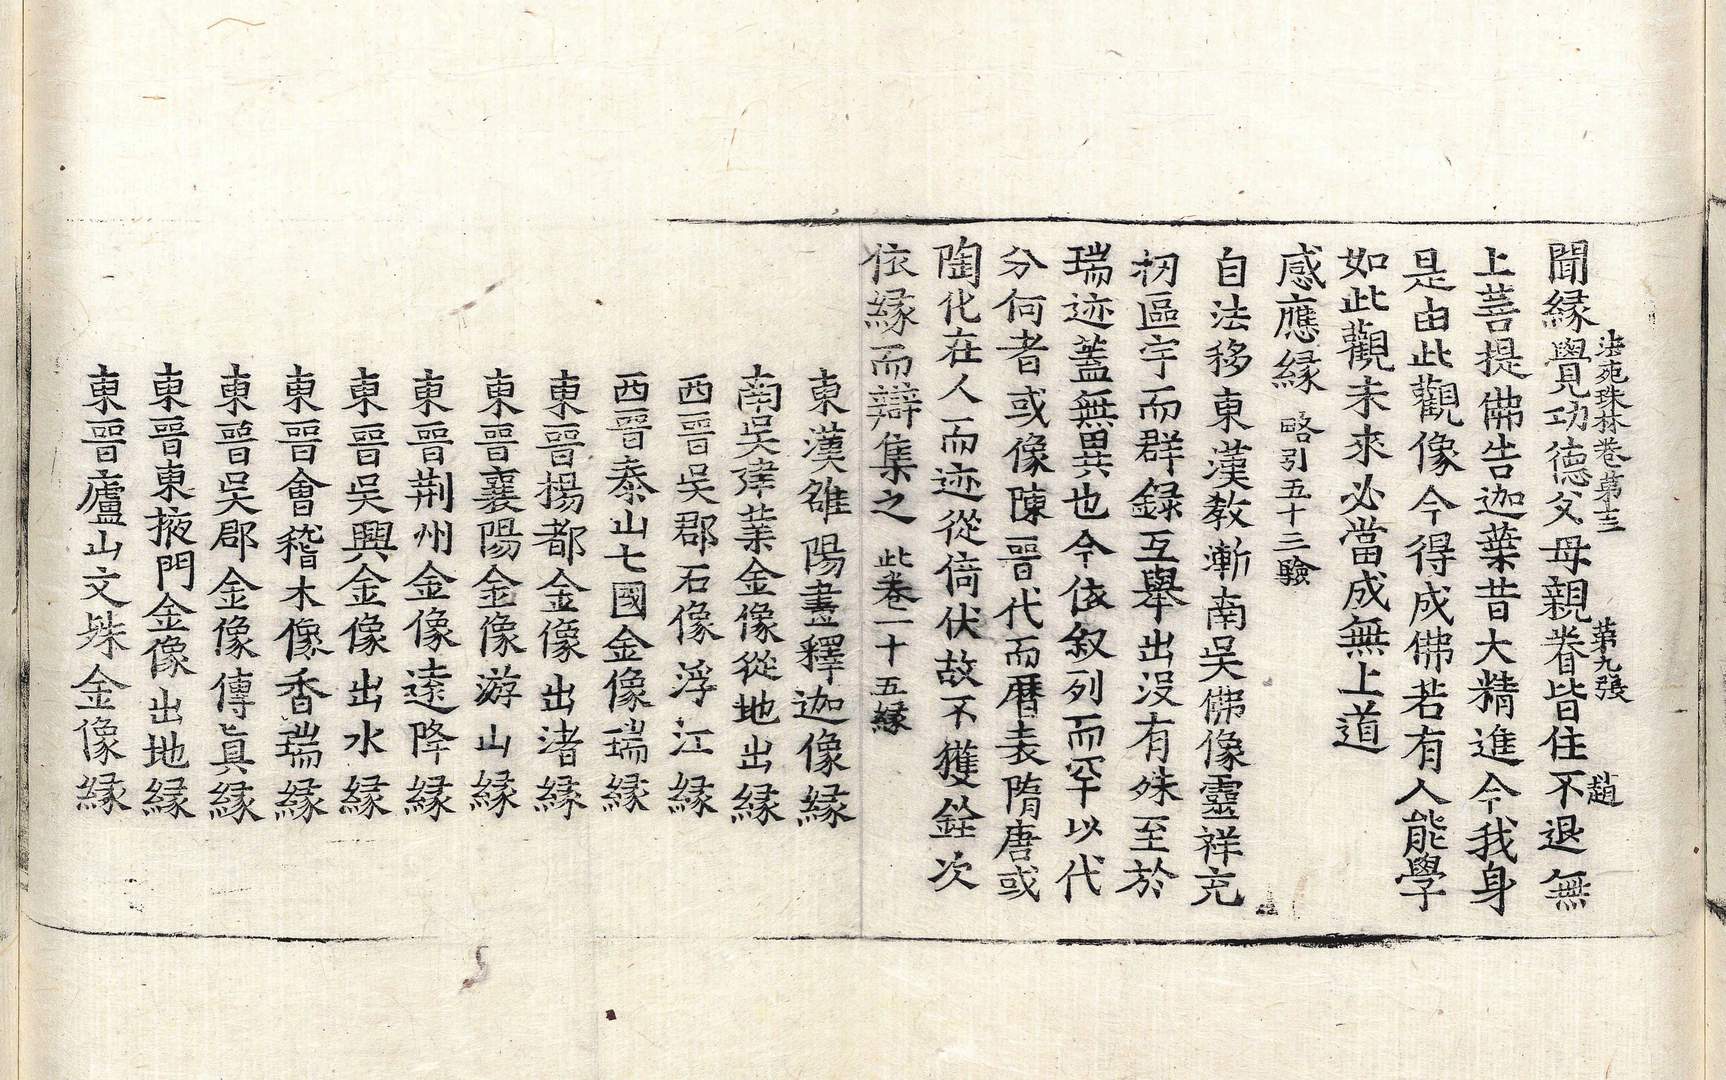 聞緣覺功德父母親眷皆住不退無
法苑珠林卷第十三　第九張　趙
上菩提佛告迦葉昔大精進今我身
是由此觀像今得成佛若有人能學
如此觀未來必當成無上道
感應緣 略引五十三驗
自法移東漢教漸南吳佛像靈祥充
牣區宇而群錄互舉出沒有殊至於
瑞迹蓋無異也今依叙列而罕以代
分何者或像陳晉代而曆表隋唐或
陶化在人而迹從倚伏故不獲銓次
依緣而辯集之 此卷一十五緣
東漢雒陽畫釋迦像緣
南吳建業金像從地出緣
西晉吳郡石像浮江緣
西晉泰山七國金像瑞緣
東晉揚都金像出渚緣
東晉襄陽金像游山緣
東晉荊州金像遠降緣
東晉吳興金像出水緣
東晉會稽木像香瑞緣
東晉吳郡金像傳真緣
東晉東掖門金像出地緣
東晉廬山文殊金像緣